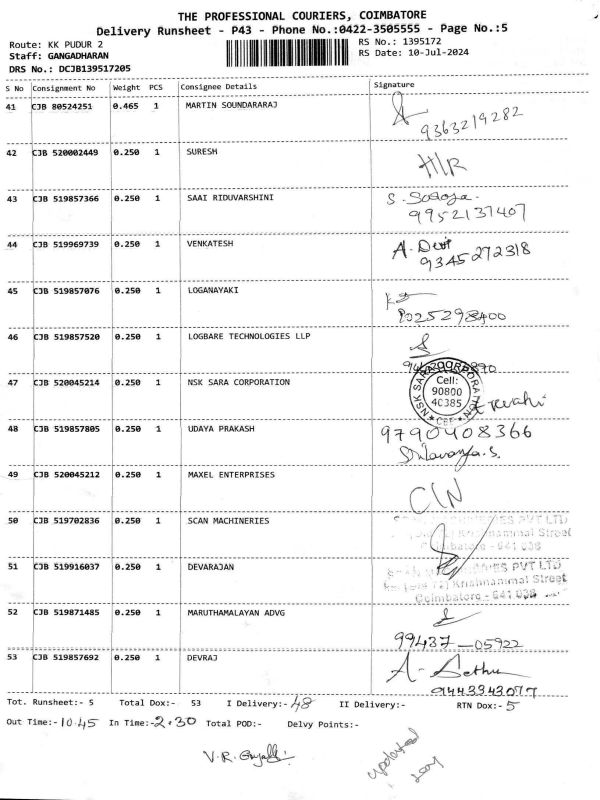 THE PROFESSIONAL COURIERS, COIMBATORE
Delivery Runsheet - P43 - Phone No.:0422-3505555 - Page No.:5
Route: KK PUDUR 2
RS No.: 1395172
Staff: GANGADHARAN
RS Date: 10-Jul-2024
DRS No.: DCJB139517205
S No Consignment No Weight PCS Consignee Details Signature
41 CJB 80524251 0.465 1 MARTIN SOUNDARARAJ
9363219282
42 CJB 520002449 0.250 1 SURESH
H/R
43 CJB 519857366 0.250 1 SAAI RIDUVARSHINI S. Saroja.
9952137407
44 CJB 519969739 0.250 1 VENKATESH A. Devi
9345272318
45 CJB 519857076 0.250 1 LOGANAYAKI
8025298400
46 CJB 519857520 0.250 1 LOGBARE TECHNOLOGIES LLP
47 CJB 520045214 0.250 1 NSK SARA CORPORATION
NSK SARA CORPORATION
Cell:
90800
40385
CBE
Revathi
48 CJB 519857805 0.250 1 UDAYA PRAKASH 9790408366
49 CJB 520045212 0.250 1 MAXEL ENTERPRISES
C/N
50 CJB 519702836 0.250 1 SCAN MACHINERIES
PVT LTD
Street
641 038
51 CJB 519916037 0.250 1 DEVARAJAN
PVT LTD
Krishnammal Street
Coimbatore - 641 038
52 CJB 519871485 0.250 1 MARUTHAMALAYAN ADVG
99437-05922
53 CJB 519857692 0.250 1 DEVRAJ A- Sethu
9443343077
Tot. Runsheet:- 5 Total Dox:- 53 I Delivery:- 48 II Delivery:- RTN Dox:- 5
Out Time:- 10.45 In Time:- 2.30 Total POD:- Delvy Points:-
V.R.
updated